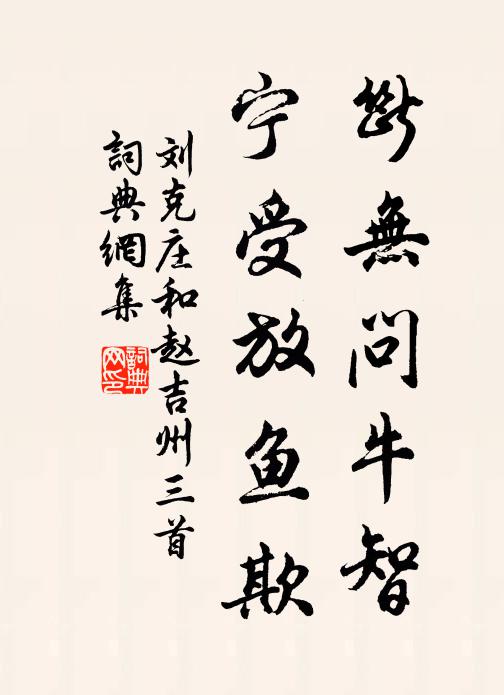 斷無問牛智
宁受放鱼欺
刘克庄和赵吉州三首
詞典網集
詞典網印